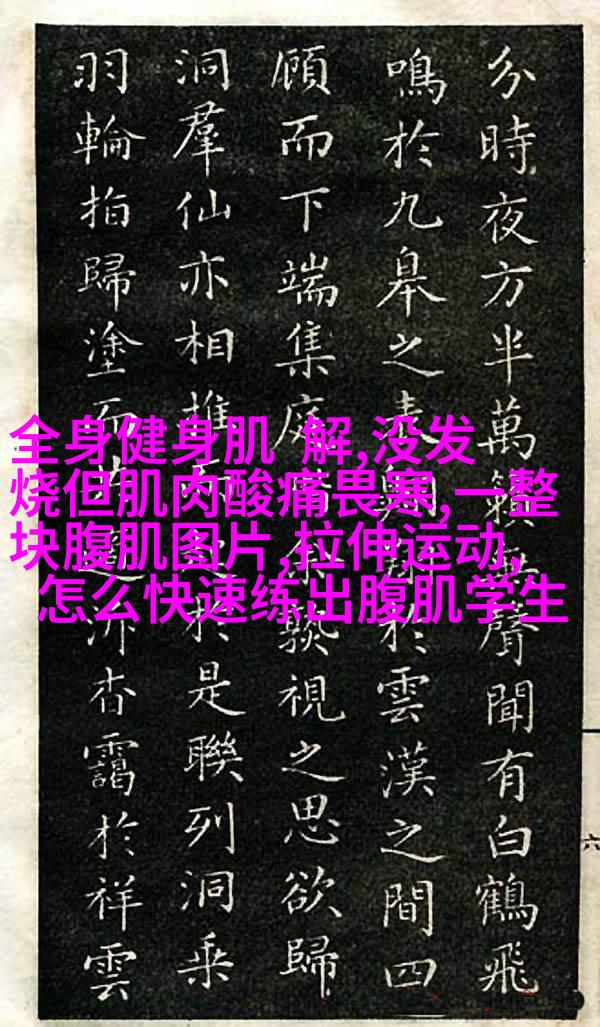 全身健身肌 解,没发
烧但肌肉酸痛畏寒,一整
块腹肌图片,拉伸运动,
怎么快速练出腹肌学生
分時夜方半萬聲聞有白鶴飛
鳴於九皋之表於雲漢之間四
顧而下端集庭視之思欲歸
洞羣仙亦相推於是聯列洞乘
羽輪拍歸塗而杳靄於祥雲
六